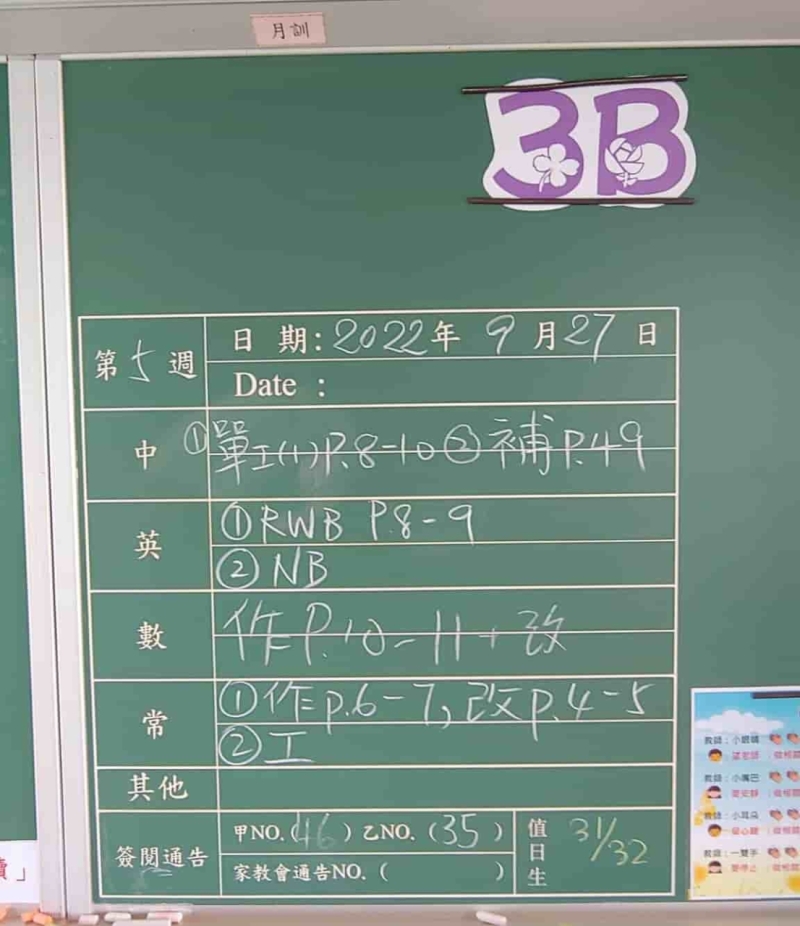 月訓
3B
第5週
日期:2022年9月27日
Date :
中
①單工(1)P.8-10 ②補P.49
英
①RWB P.8-9
②NB
數
作P.10-11+改
常
①作p.6-7,改p.4-5
②工
其他
簽閱通告
甲NO.(46) 乙NO.(35)
家教會通告NO.( )
值日生
31/32
教師:小眼睛
望老師
教師:小嘴巴
要安靜
教師:小耳朵
留心聽
教師:一雙手
要停止